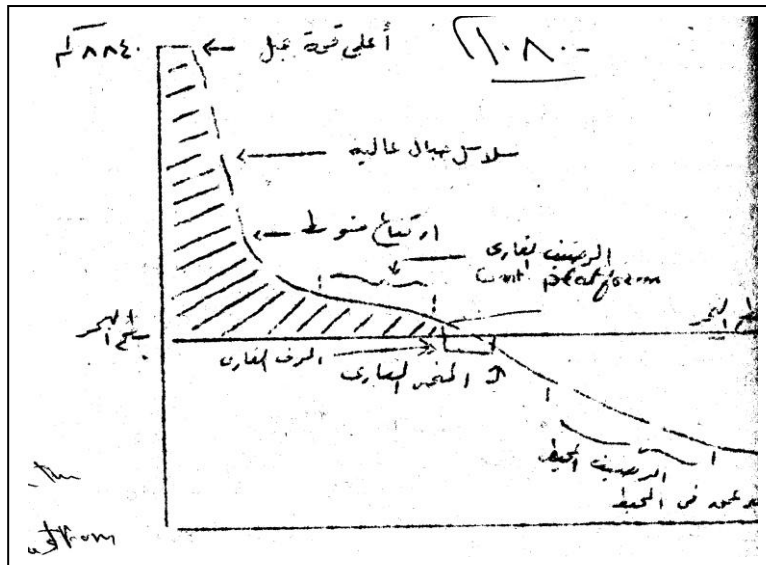 ٨٨٤٠ كم
أعلى قمة جبل
١٠٨٠-
سلاسل جبال عاليه
ارتفاع متوسط
الرصيف القارى
Cont platform
سطح البحر
سطح البحر
الرف القارى
المنحدر القارى
الرصيف المحيطى
عمق فى المحيط